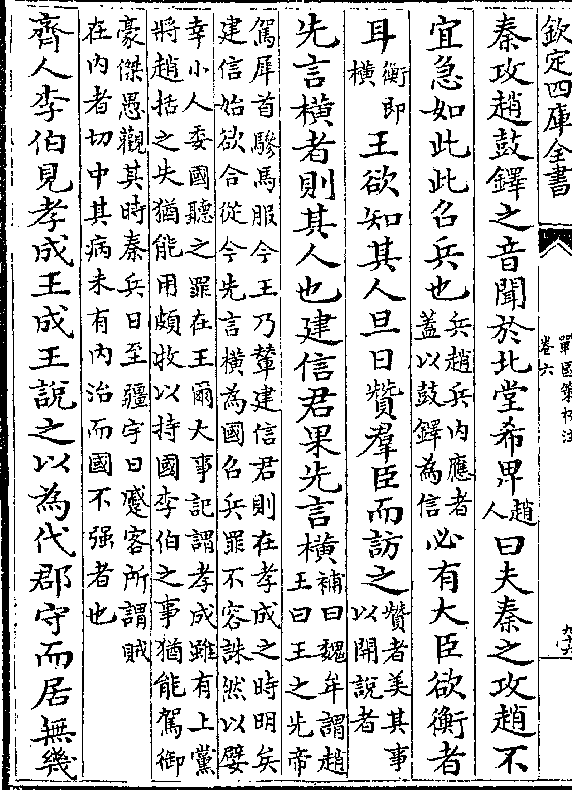 欽定四庫全書
戰國策校注
卷六
秦攻趙鼓鐸之音聞於北堂希𤰞趙人曰夫秦之攻趙不
宜急如此此召兵也兵趙兵内應者蓋以鼓鐸為信必有大臣欲衡者
耳衡即橫王欲知其人旦日贊羣臣而訪之贊者美其事以開說者
先言橫者則其人也建信君果先言橫補曰魏牟謂趙王曰王之先帝
駕犀首驂馬服今王乃輦建信君則在孝成之時明矣
建信始欲合從今先言橫為國召兵罪不容誅然以嬖
幸小人委國聽之罪在王爾大事記謂孝成雖有上黨
將趙括之失猶能用頗牧以持國李伯之事猶能駕御
豪傑愚觀其時秦兵日至疆宇日蹙客所謂賊
在内者切中其病未有内治而國不强者也
齊人李伯見孝成王成王說之以為代郡守而居無幾